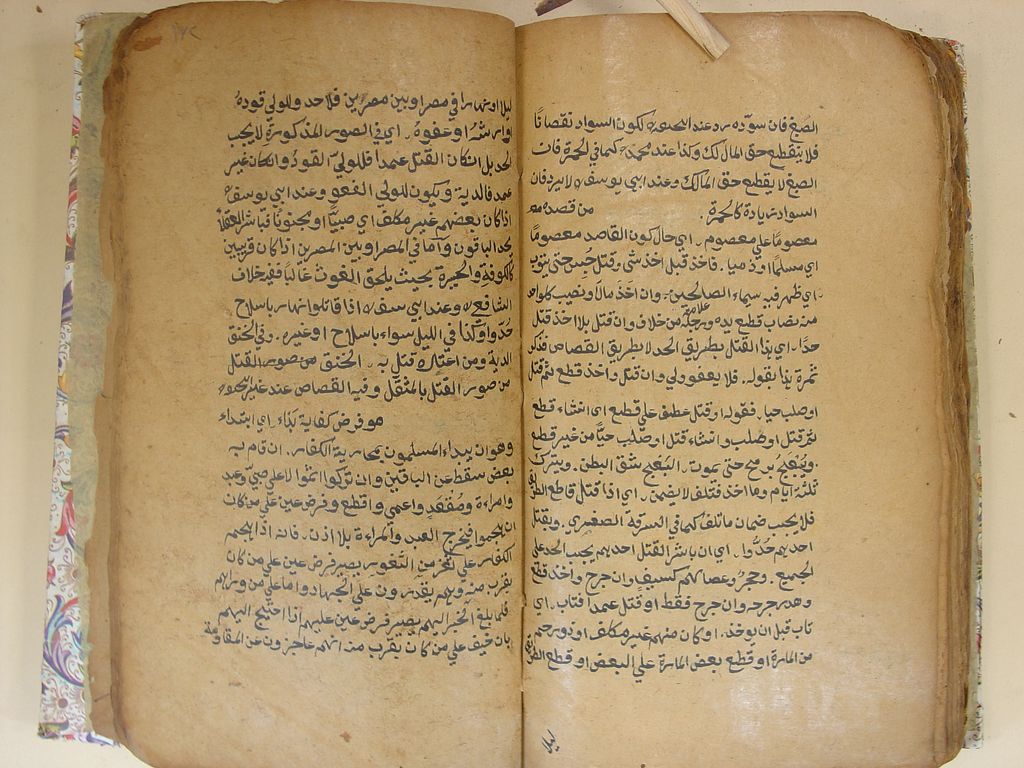 الصبغ فان سوّده رد عند ابيحنيفة لكون السواد نقصانا
فلا ينقطع حق المالك وكذا عند محمد كما في الحمرة فان
الصبغ لا يقطع حق المالك وعند ابي يوسف لا يرد فان
السواد زيادة كالحمرة . من قصده
معصوما على معصوم . اي حال كون القاصد معصوما
اي مسلما او ذميا . فاخذ قبل اخذ شئ وقتل حبس حتى يتوب
اي ظهر فيه سيماء الصالحين . وان اخذ مالا ونصيب كل واحد
منه نصاب قطع يده ورجله من خلاف وان قتل بلا اخذ قتل
حدا . اي بذا القتل بطريق الحد لا بطريق القصاص فذكر
ثمرة بذا بقوله . فلا يعفو ولي وان قتل واخذ قطع ثم قتل
او صلب حيا . فقوله او قتل عطف على قطع اي ان شاء قطع
ثم قتل او صلب وان شاء قتل او صلب حيا من غير قطع
. ويبعج برمح حتى يموت . البعج شق البطن . ويترك
ثلثة ايام وما اخذ فتلف لا يضمن . اي اذا قتل قاطع الطريق
فلا يجب ضمان ما تلف كما في السرقة الصغرى . وبقتل
احدهم حُدّوا . اي ان باشر القتل احدهم يجب الحد على
الجميع . وحجر وعصا لهم كسيف وان جرح واخذ قطع
وهدر جرحه وان جرح فقط او قتل عمدا فتاب . اي
تاب قبل ان يوخذ . او كان منهم غير مكلف او ذو رحم
من المارة او قطع بعض المارة على البعض او قطع الطريق
ليلا
١٧٢
ليلا او نهارا في مصر او بين مصرين فلا حد وللولي قوده
او ارشه او عفوه . اي في الصور المذكورة لا يجب
الحد بل ان كان القتل عمدا فللولي القود وان كان غير
عمد فالدية ويكون للولي العفو وعند ابي يوسف
اذا كان بعضهم غير مكلف اي صبيا او مجنونا فباشر العقلاء
يحد الباقون واما في المصر او بين المصرين اذا كان قريبين
كالكوفة والحيرة بحيث يلحق الغوث غالبا ففيه خلاف
الشافعي وعند ابي يوسف اذا قاتلوا نهارا بسلاح
حُدّوا وكذا في الليل سواء بسلاح او غيره . وفي الخنق
الدية ومن اعتاده قتل به . الخنق من صور القتل
من صور القتل بالمثقل وفيه القصاص عند غير ابيحنيفة
هو فرض كفاية بداء . اي ابتداء
وهو ان يبداء المسلمون بمحاربة الكفار . ان قام به
بعض سقط عن الباقين وان تركوا اثموا لا على صبي وعبد
وامراءة ومقعد واعمى واقطع وفرض عين على من كان
ان هجموا فيخرج العبد والمراءة بلا اذن . فانه اذا هجم
الكفار على ثغر من الثغور يصير فرض عين على من كان
يقرب منه وهم يقدرون على الجهاد واما على من وراءهم
فلما بلغ الخبر اليهم يصير فرض عين عليهم اذا احتيج اليهم
بان خيف على من كان يقرب منه انهم عاجزون عن المقاومة